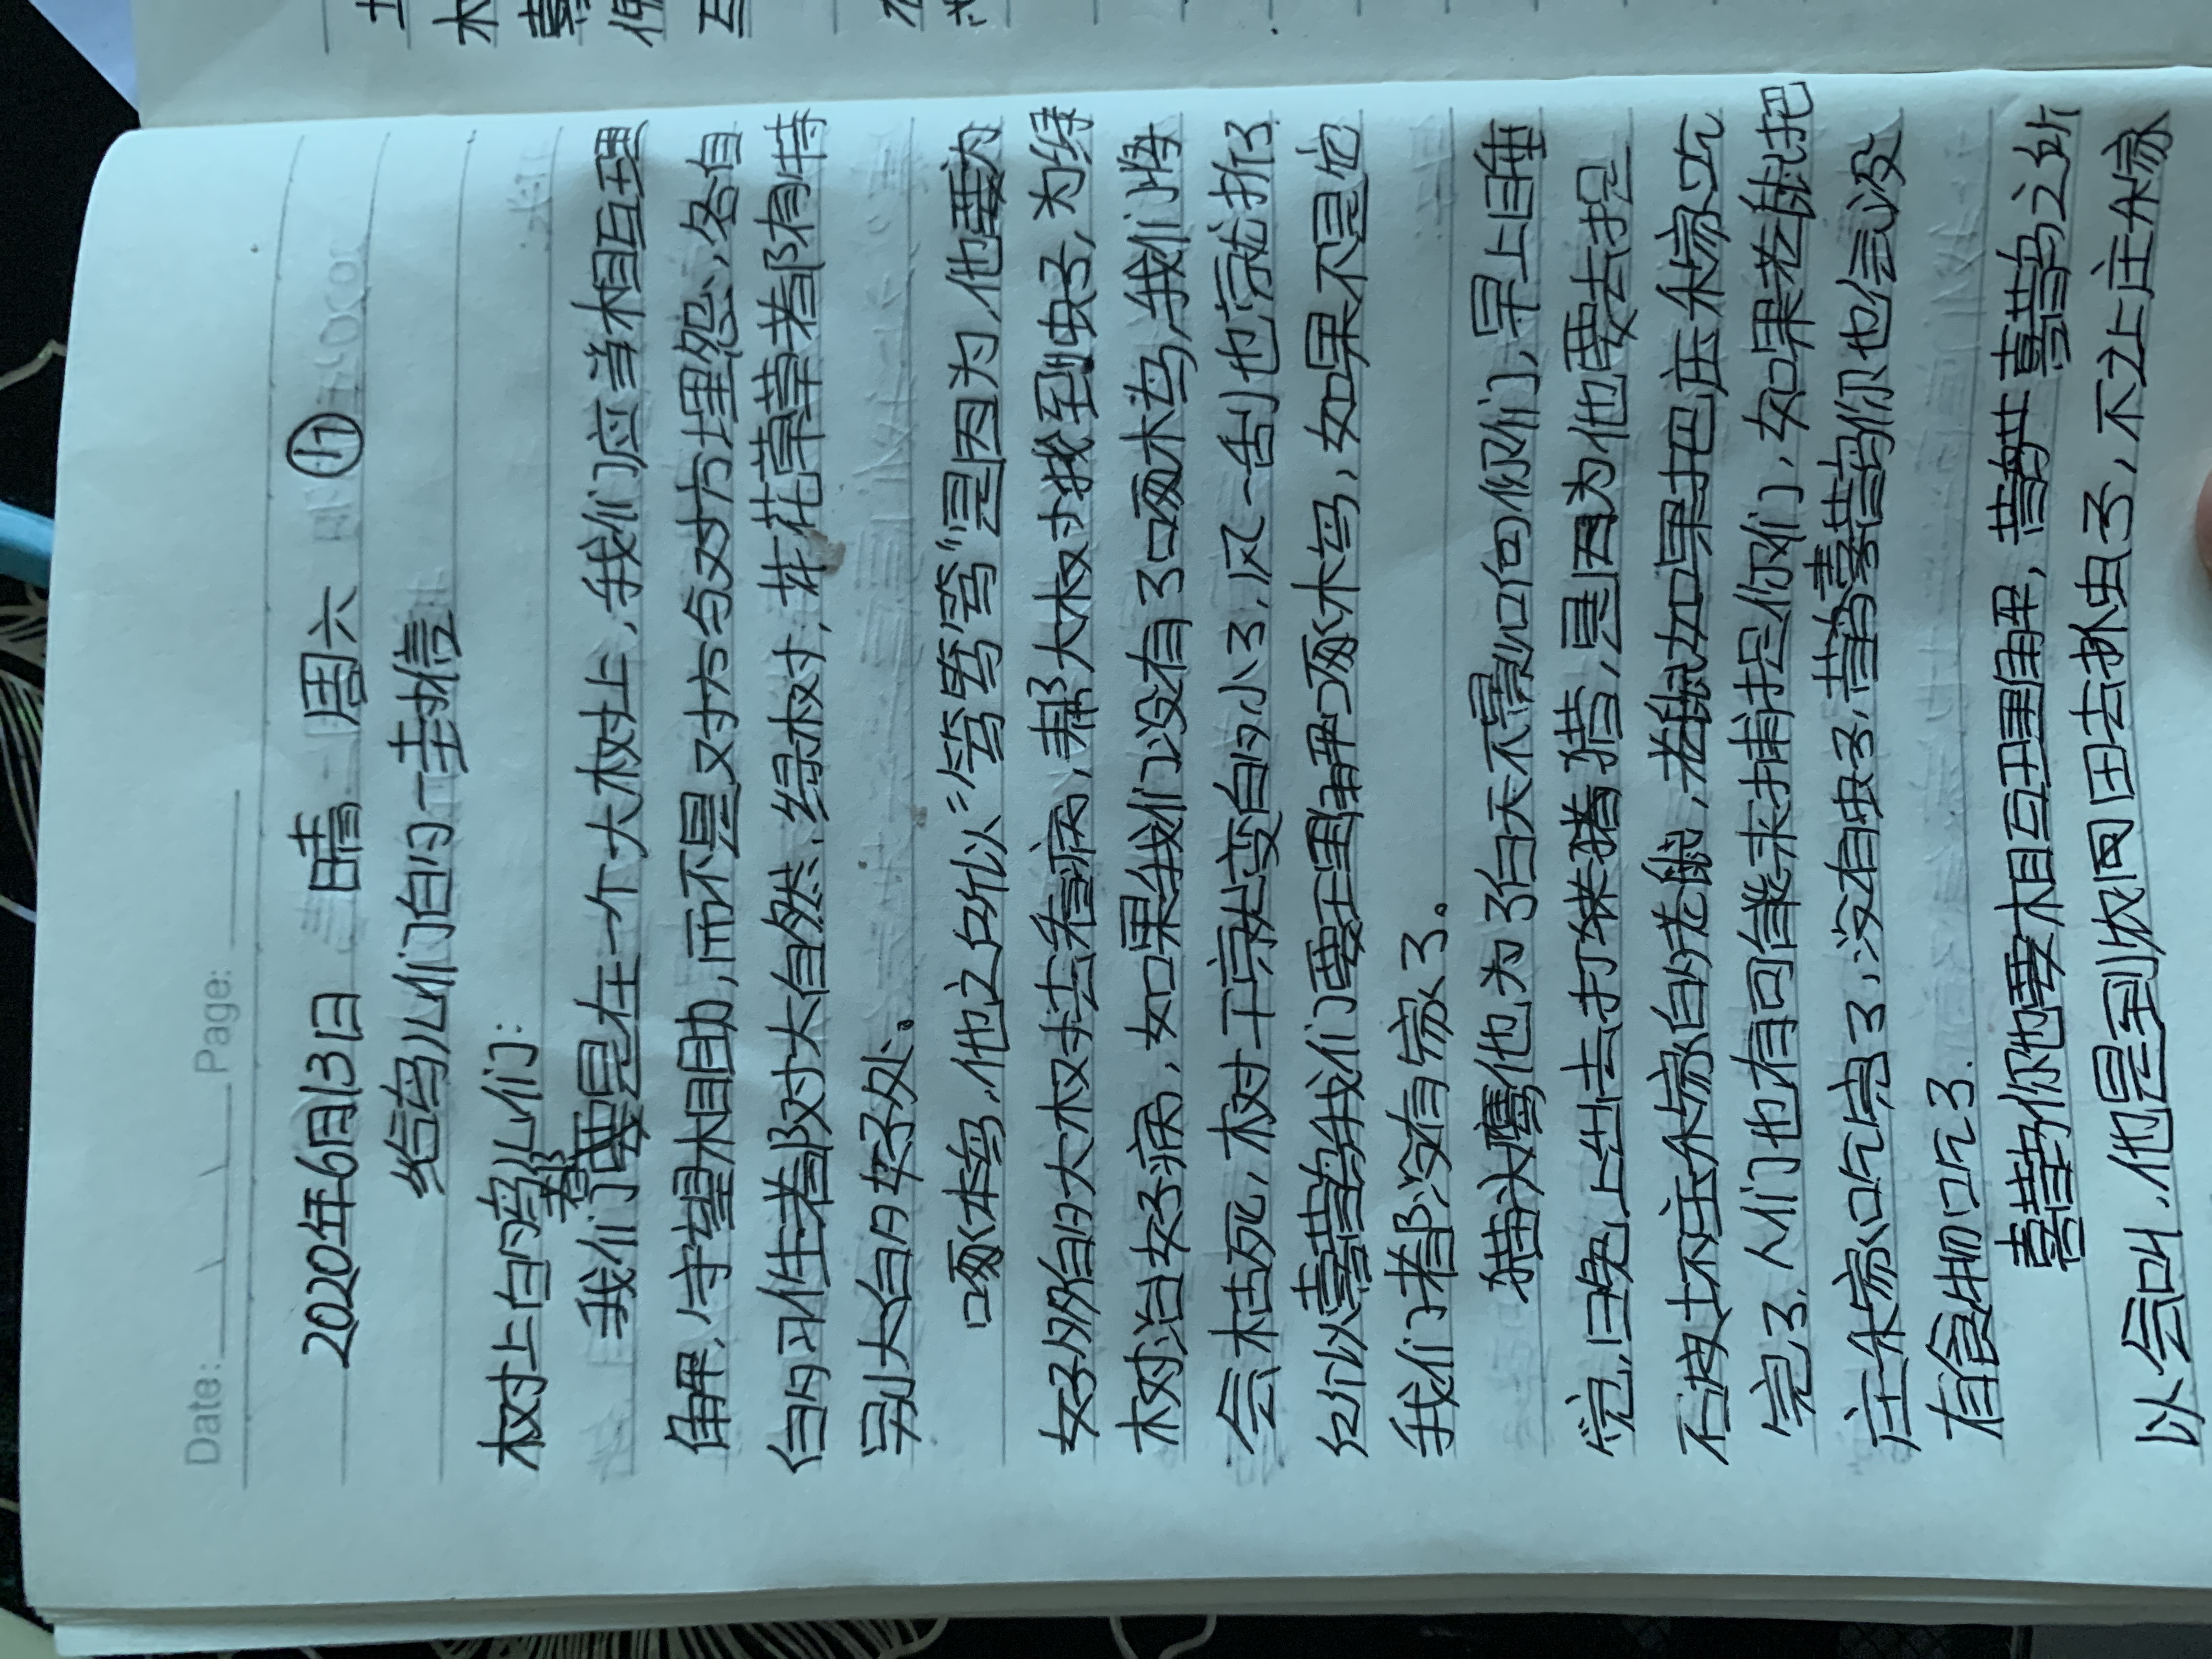 Date: Page:
2020年6月13日 晴 周六 ⑰
给鸟儿们的一封信
树上的鸟儿们:
我们都是在一个大树上,我们应当相互理
解,守望相助,而不是对方与对方埋怨、各自
的习性都对大自然、绿树,花花草草都有特
别大的好处。
啄木鸟,他之所以"笃笃笃"是因为,他要为
好朋的大树去看病,帮大树找到虫子,为绿
树治好病,如果我们没有了啄木鸟,我们将
会枯死,树干就变的小了,风一刮也就折了
所以喜鹊我们要理解啄木鸟,如果不是他
我们都没有家了。
猫头鹰他为了白天不影响你们,早上睡
觉,晚上出去打猎,是因为他要去捉
破坏庄稼的老鼠,老鼠如果把庄稼吃
完了,人们也有可能来捕捉你们,如果老鼠把
庄稼吃完了,没有虫子,喜鹊你也会没
有食物吃了.
喜鹊你也要相互理解,喜鹊之所
以会叫,他是到农田去抓虫子,不让庄稼